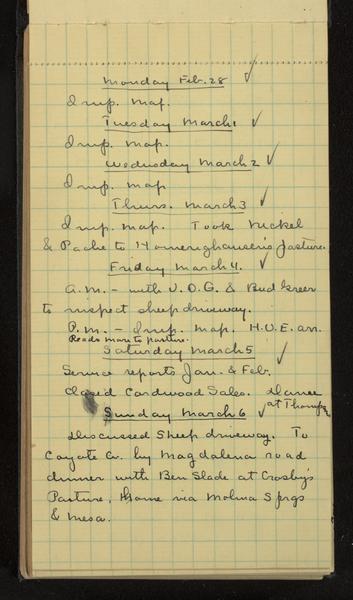 Monday Feb. 28 ✓
Imp. Map.
Tuesday March 1 ✓
Imp. map.
Wednesday March 2 ✓
Imp. Map
Thurs. March 3 ✓
Imp. Map. Took Nickel
& Pache to Homerighausen's pasture.
Friday March 4. ✓
A.M. – with V.O.G. & Bud Greer
to inspect sheep driveway.
P.M. – Imp. map. H.U.E. arr.
Roads to pasture.
Saturday March 5 ✓
Service reports Jan. & Feb.
Closed Cordwood Sales. Dance
at Thomp
Sunday March 6 ✓
Discussed Sheep driveway. To
Coyote Cr. by Magdalena road
dinner with Ben Slade at Crosby's
Pasture, Home via Molina Sprgs
& Mesa.